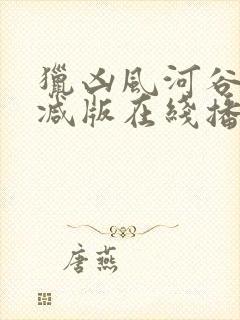 獵凶風河谷
减版在綫播
唐燕